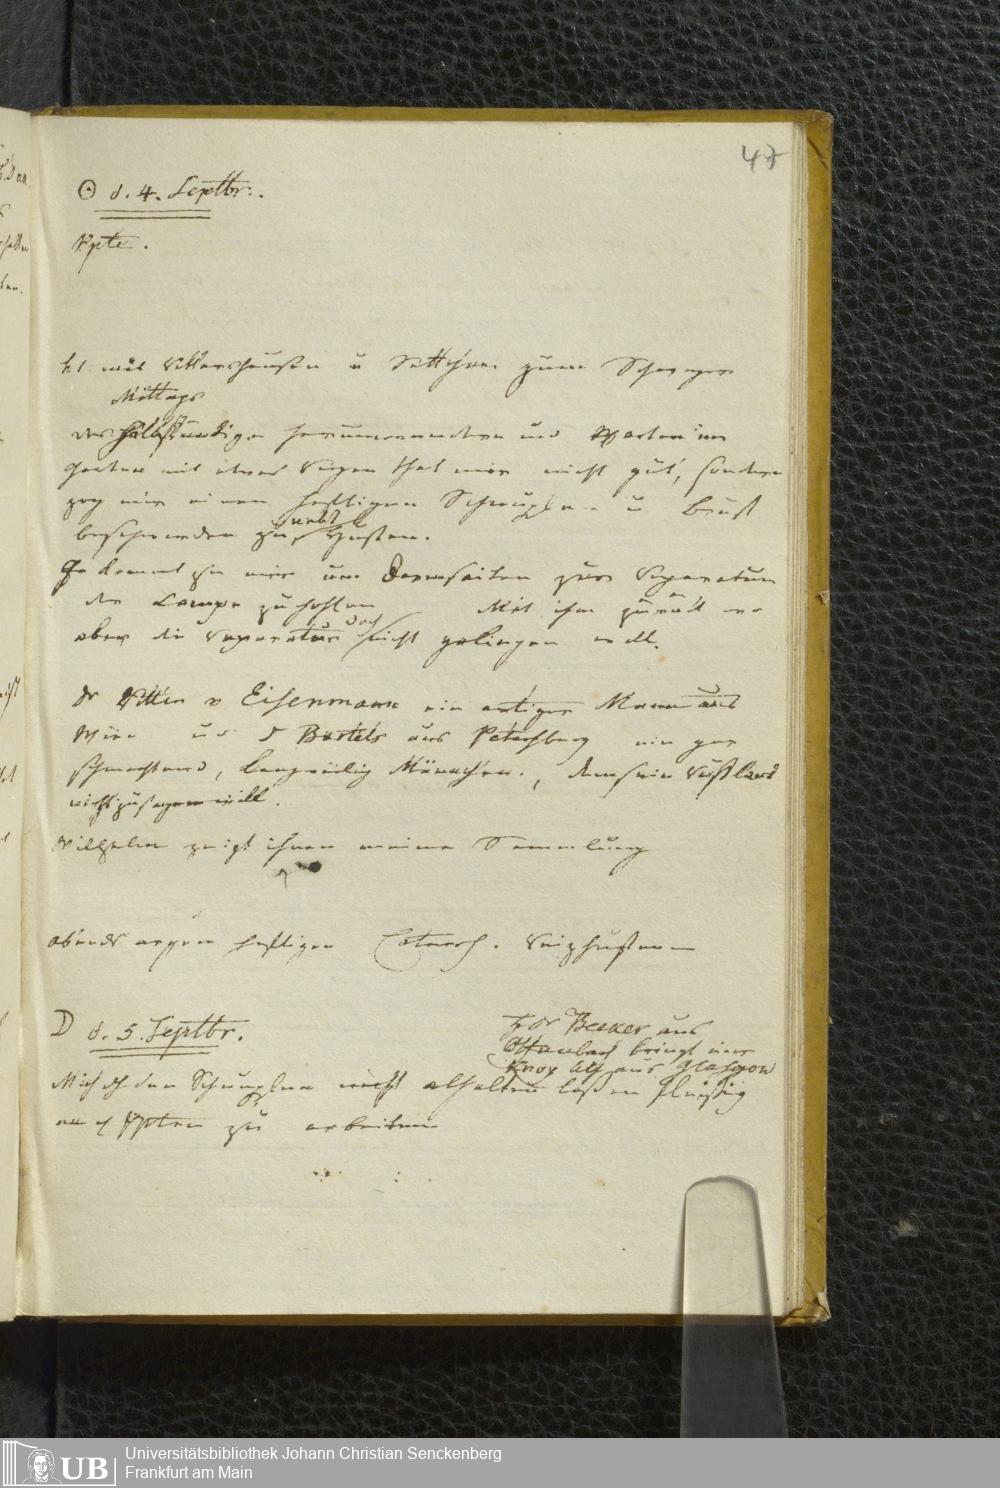 47
☉ d. 4. Septbr.
Ppte.
u zum
Mittags
der halbstündige herumwandern und Warten im
Garten mit etwas Regen that mir nicht gut, sondern
zog mir einen heftigen Schnupfen u Brust
beschwerden zu nebst Husten.
kommt zu mir um Darmsaiten zur Reparatur
der Lampe zu hohlen Mit ihm zurück wo
aber die Reparatur doch nicht gelingen will.
Dr Ritter v Eisenmann ein artiger Mann aus
Wien und D Bartels aus Petersburg ein gar
schmachtend, langweilig Männchen, dem sein Rußland
nicht zusagen will.
Wilhelm zeigt ihnen meine Sammlung
abends argen heftigen Catarrh. Reizhusten
☽ d. 5. Septbr.
Hr Dr Becker aus
Offenbach bringt mir
Knox aus Glasgow
Mich den Schnupfen nicht abhalten laßen fleißig
an zu arbeiten
UB
Universitätsbibliothek Johann Christian Senckenberg
Frankfurt am Main